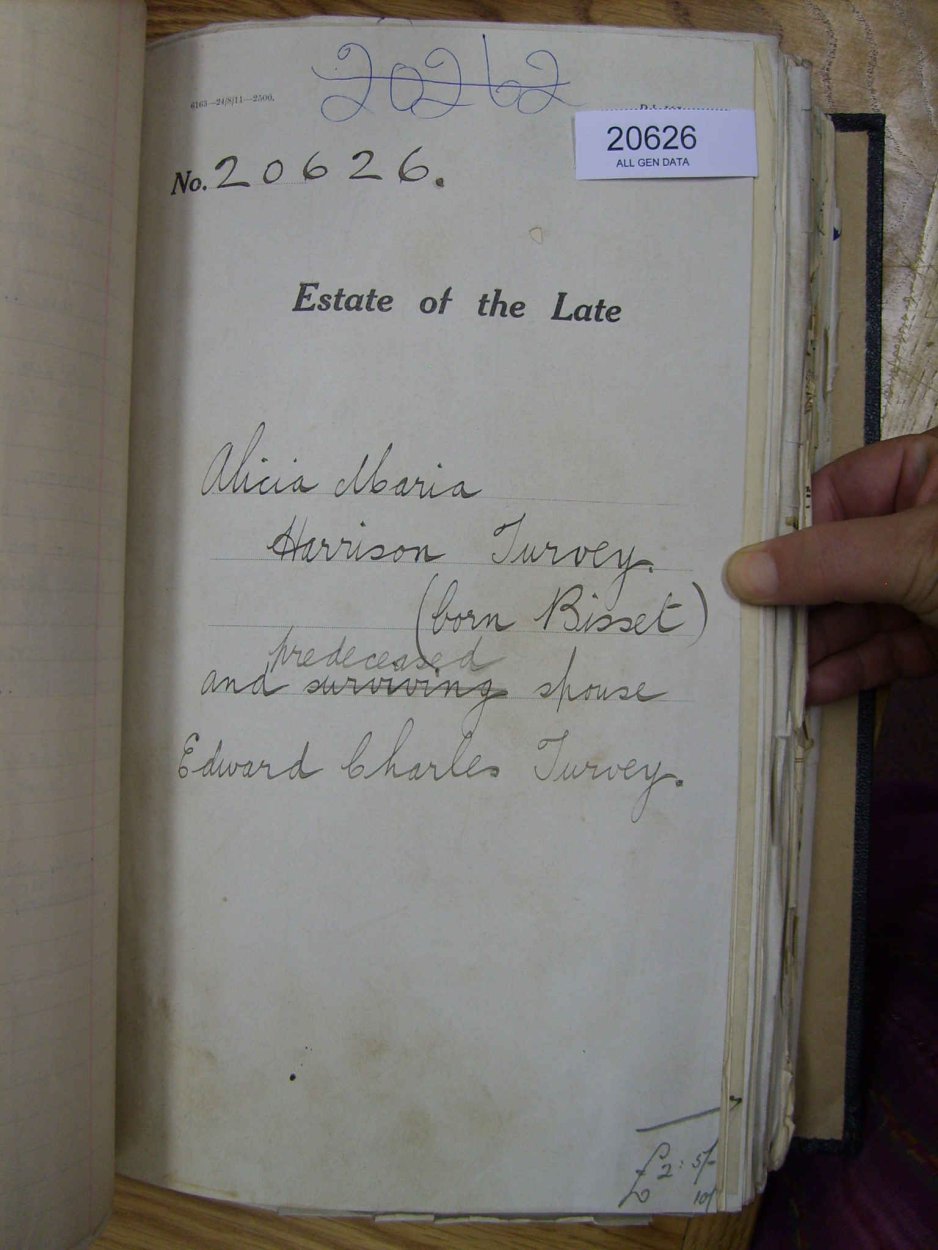 20262
6163—24/8/11—2500.
20626
ALL GEN DATA
No. 20626.
Estate of the Late
Alicia Maria
Harrison Turvey.
(born Bisset)
predeceased
and surviving spouse
Edward Charles Turvey.
£2: 5/-
10/